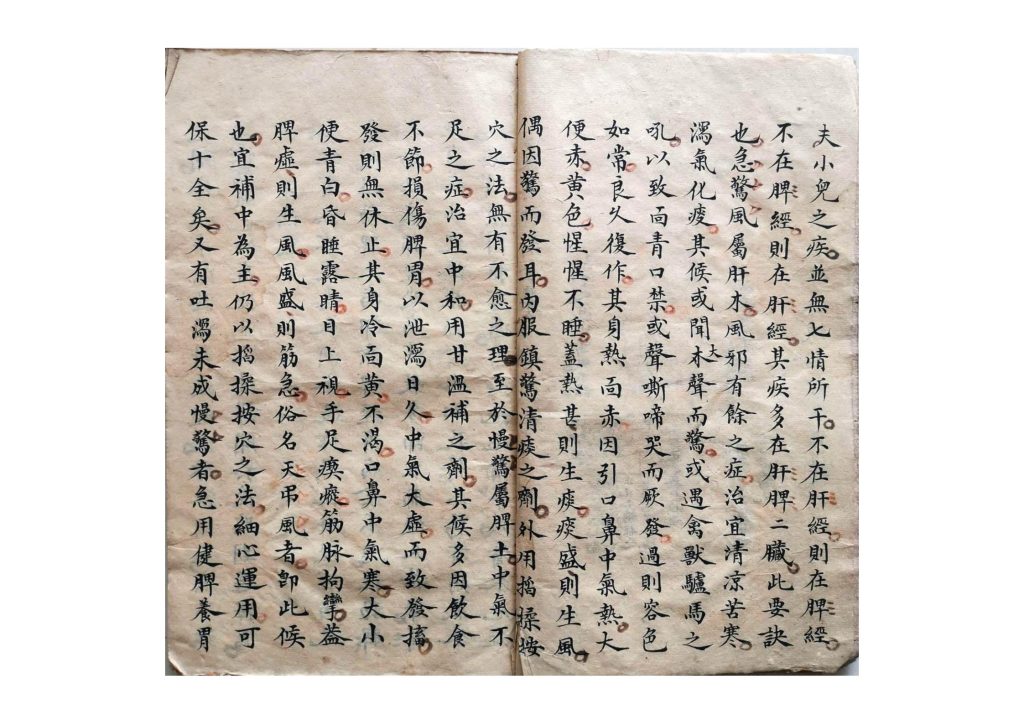 夫小兒之疾並無七情所干不在肝經則在脾經
不在脾經則在肝經其疾多在肝脾二臟此要訣
也急驚風屬肝木風邪有餘之症治宜清凉苦寒
瀉氣化痰其候或聞木大聲而驚或遇禽獸驢馬之
吼以致面青口禁或聲嘶啼哭而厥發過則容色
如常良久復作其身熱面赤因引口鼻中氣熱大
便赤黄色惺惺不睡蓋熱甚則生痰痰盛則生風
偶因驚而發耳内服鎮驚清痰之劑外用搯揉按
穴之法無有不愈之理至於慢驚屬脾土中氣不
足之症治宜中和用甘溫補之劑其候多因飲食
不節損傷脾胃以泄瀉日久中氣大虛而致發搐
發則無休止其身冷面黄不渴口鼻中氣寒大小
便青白昏睡露睛目上視手足瘈瘲筋脉拘攣蓋
脾虛則生風風盛則筋急俗名天吊風者卽此候
也宜補中為主仍以搯揉按穴之法細心運用可
保十全矣又有吐瀉未成慢驚者急用健脾養胃